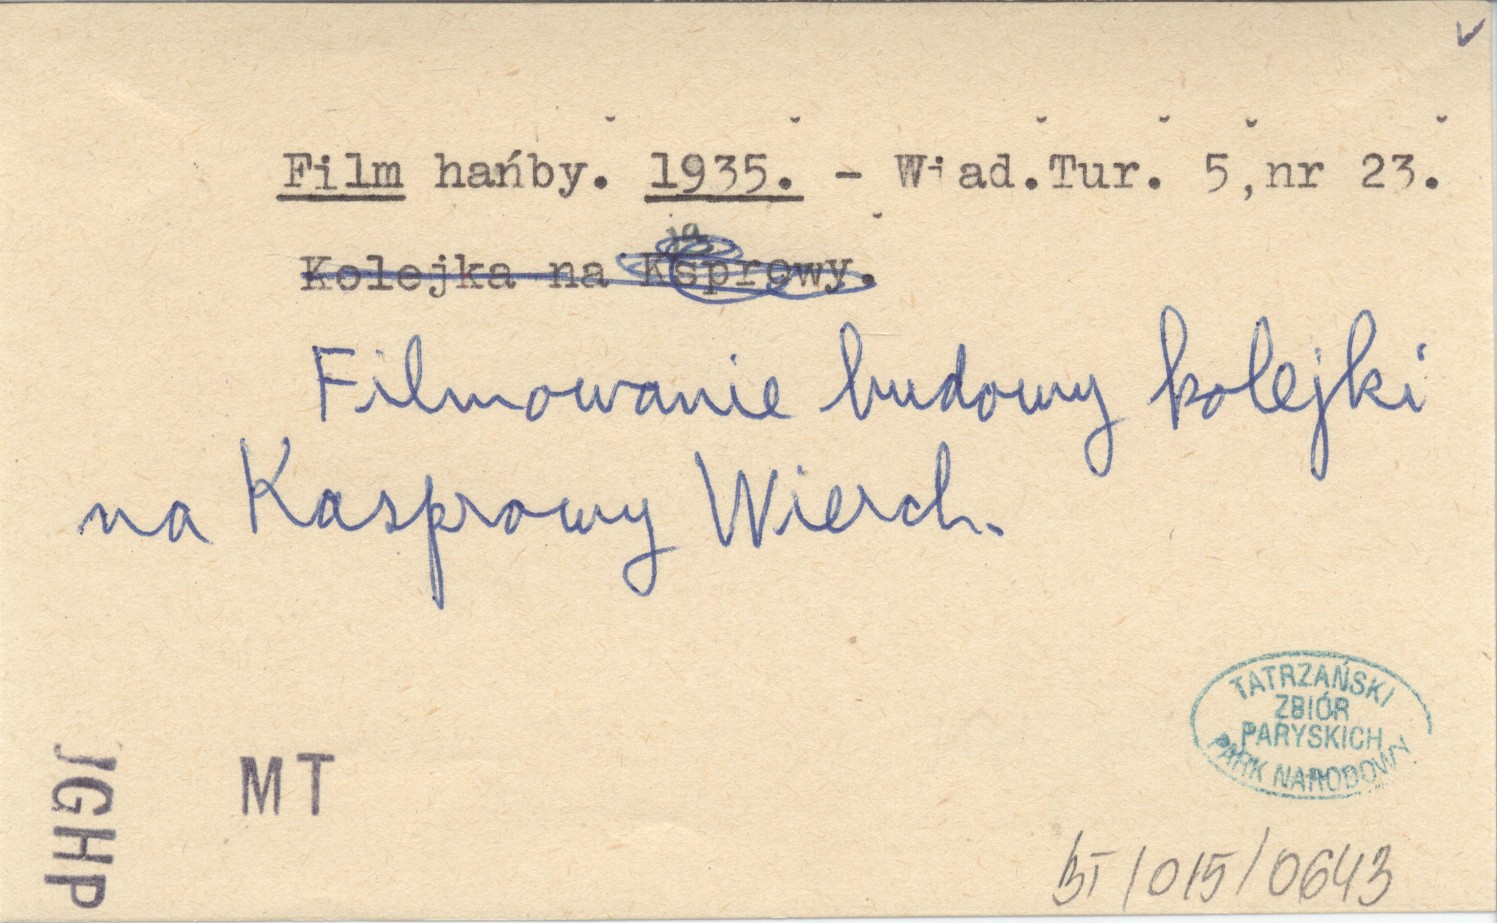 Film hańby. 1935. - Wiad.Tur. 5,nr 23.
Kolejka na Ksprowy.
Filmowanie budowy kolejki
na Kasprowy Wierch.
JGHP
MT
TATRZAŃSKI
ZBIÓR
PARYSKICH
PARK NARODOWY
BT/015/0643